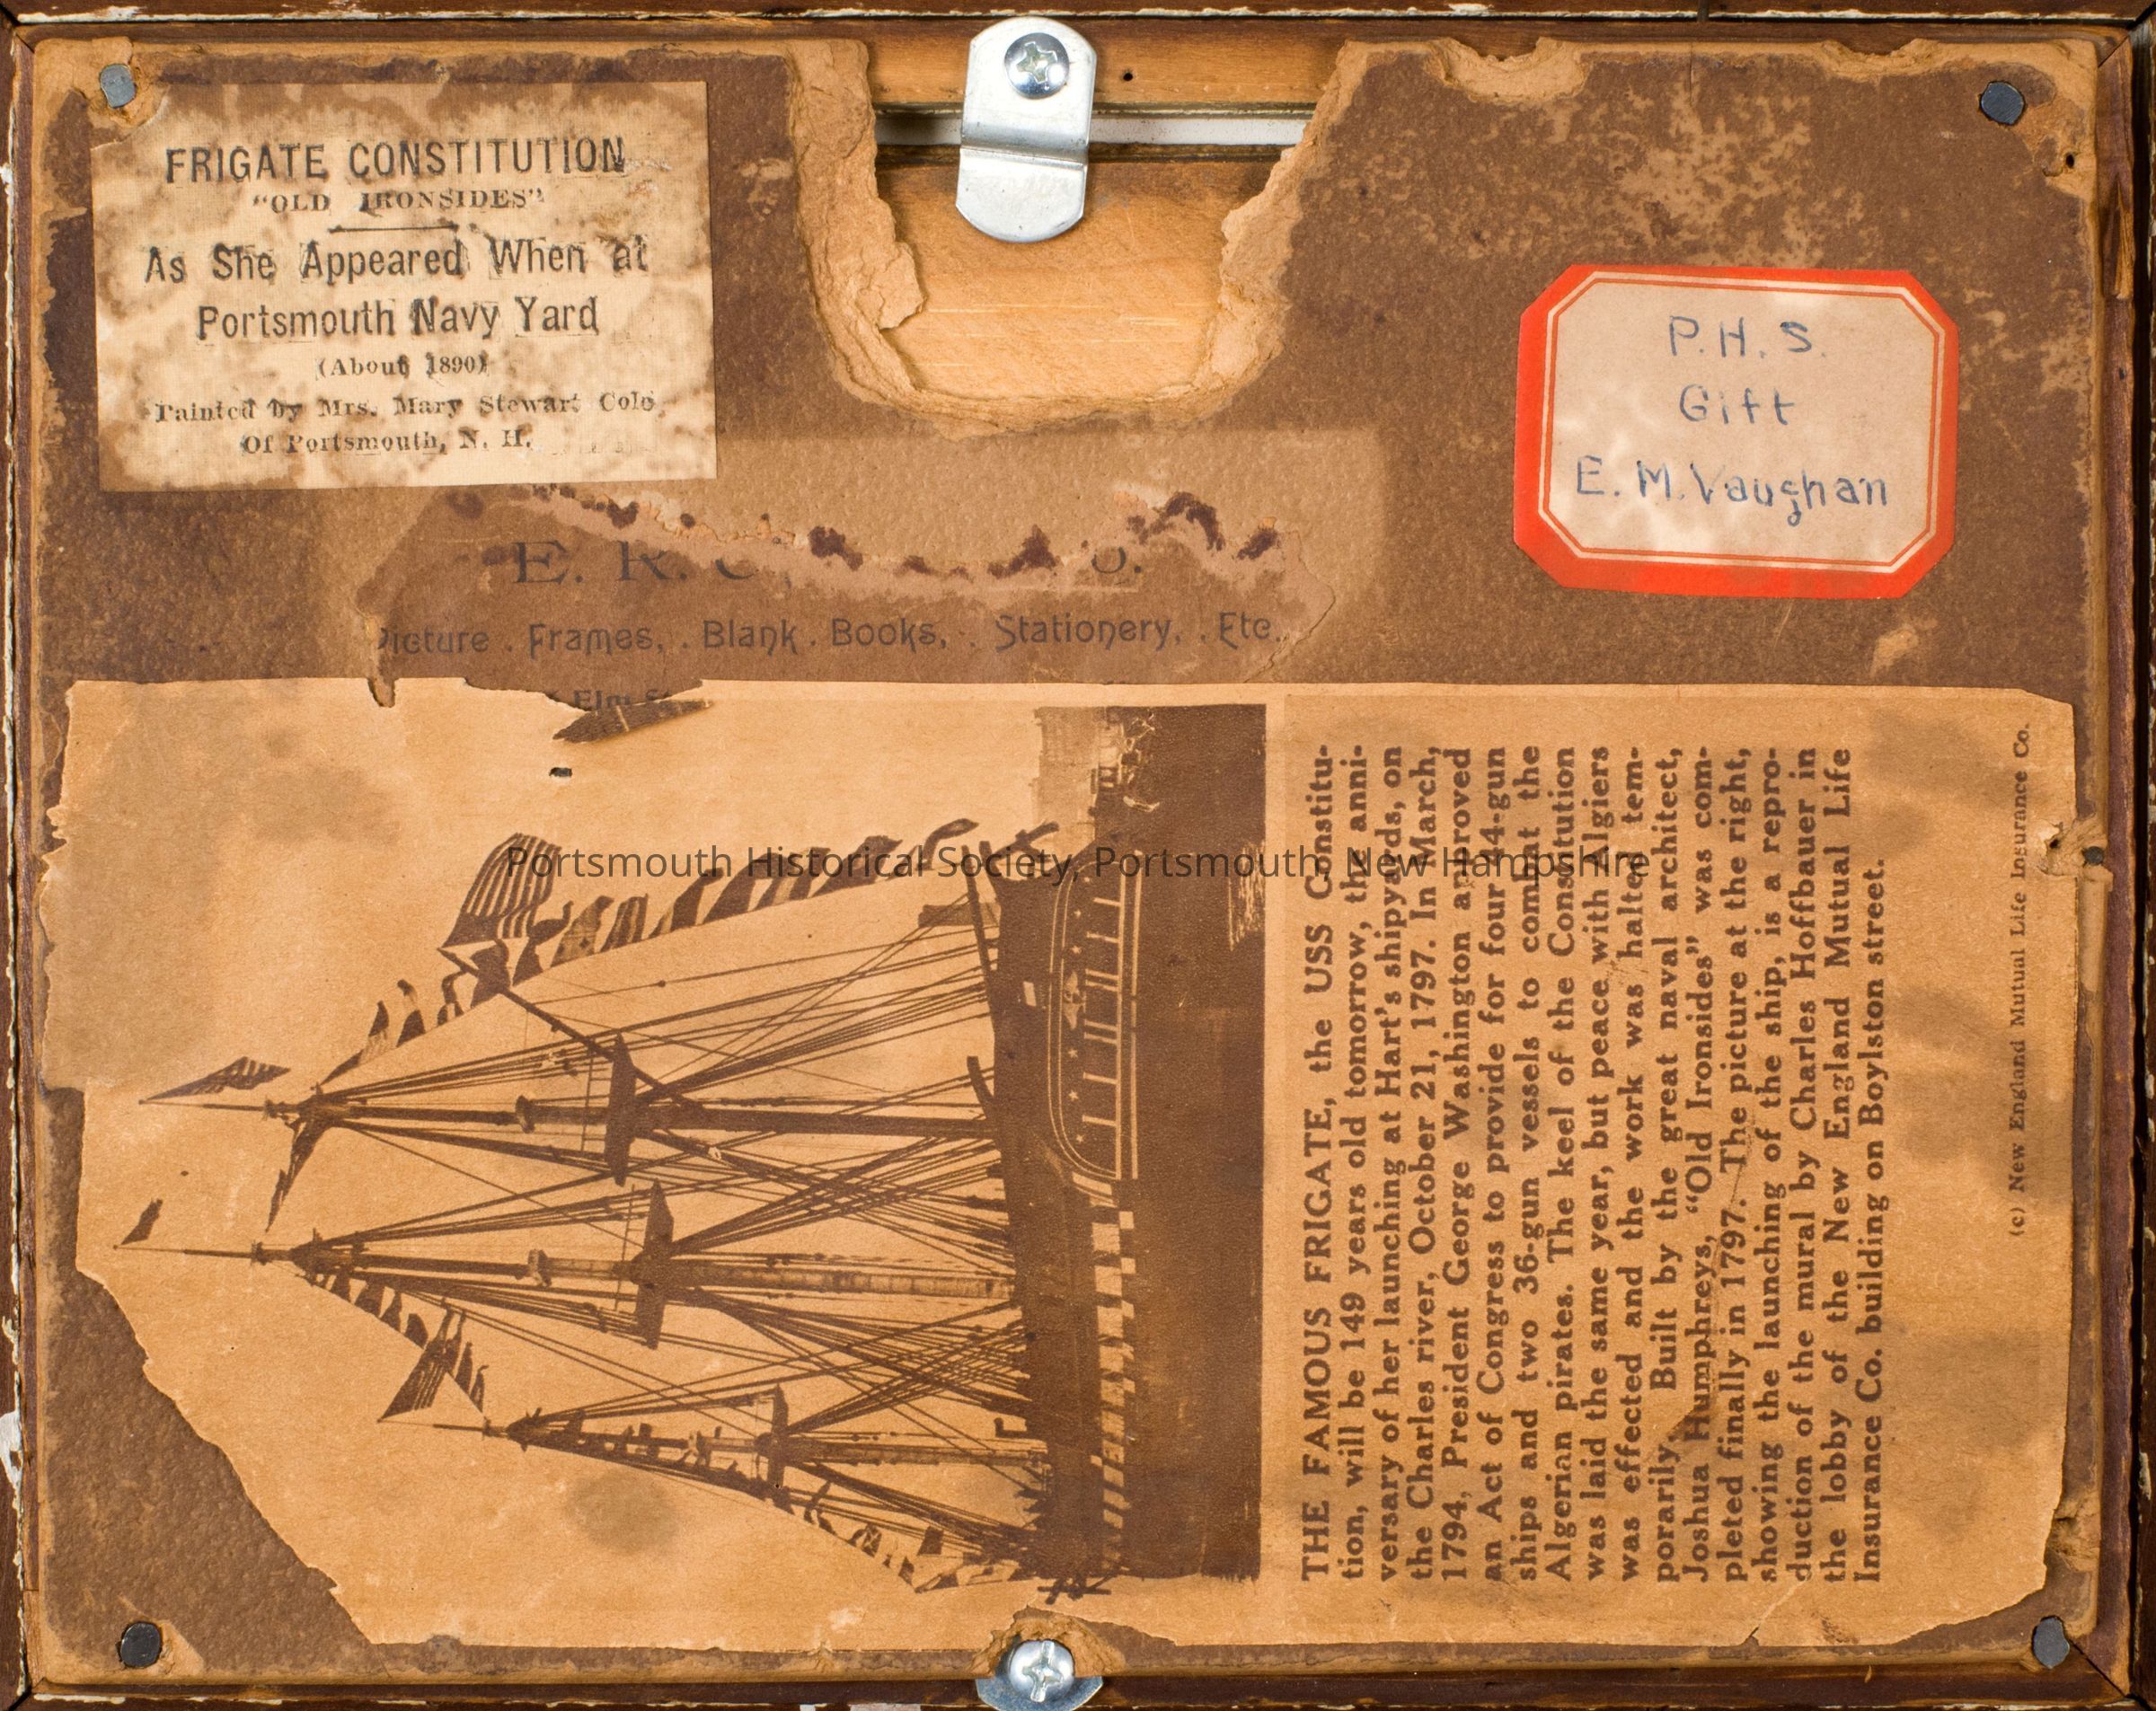 FRIGATE CONSTITUTION
"OLD IRONSIDES"
As She Appeared When at
Portsmouth Navy Yard
(About 1890)
Painted by Mrs. Mary Stewart Cole
Of Portsmouth, N. H.
P.H.S.
Gift
E. M. Vaughan
E. R.
Picture . Frames, . Blank . Books, . Stationery, . Etc.
Elm
Portsmouth Historical Society, Portsmouth, New Hampshire
THE FAMOUS FRIGATE, the USS Constitu-
tion, will be 149 years old tomorrow, the anni-
versary of her launching at Hart's shipyards, on
the Charles river, October 21, 1797. In March,
1794, President George Washington approved
an Act of Congress to provide for four 44-gun
ships and two 36-gun vessels to combat the
Algerian pirates. The keel of the Constitution
was laid the same year, but peace with Algiers
was effected and the work was halted tem-
porarily. Built by the great naval architect,
Joshua Humphreys, "Old Ironsides" was com-
pleted finally in 1797. The picture at the right,
showing the launching of the ship, is a repro-
duction of the mural by Charles Hoffbauer in
the lobby of the New England Mutual Life
Insurance Co. building on Boylston street.
(c) New England Mutual Life Insurance Co.